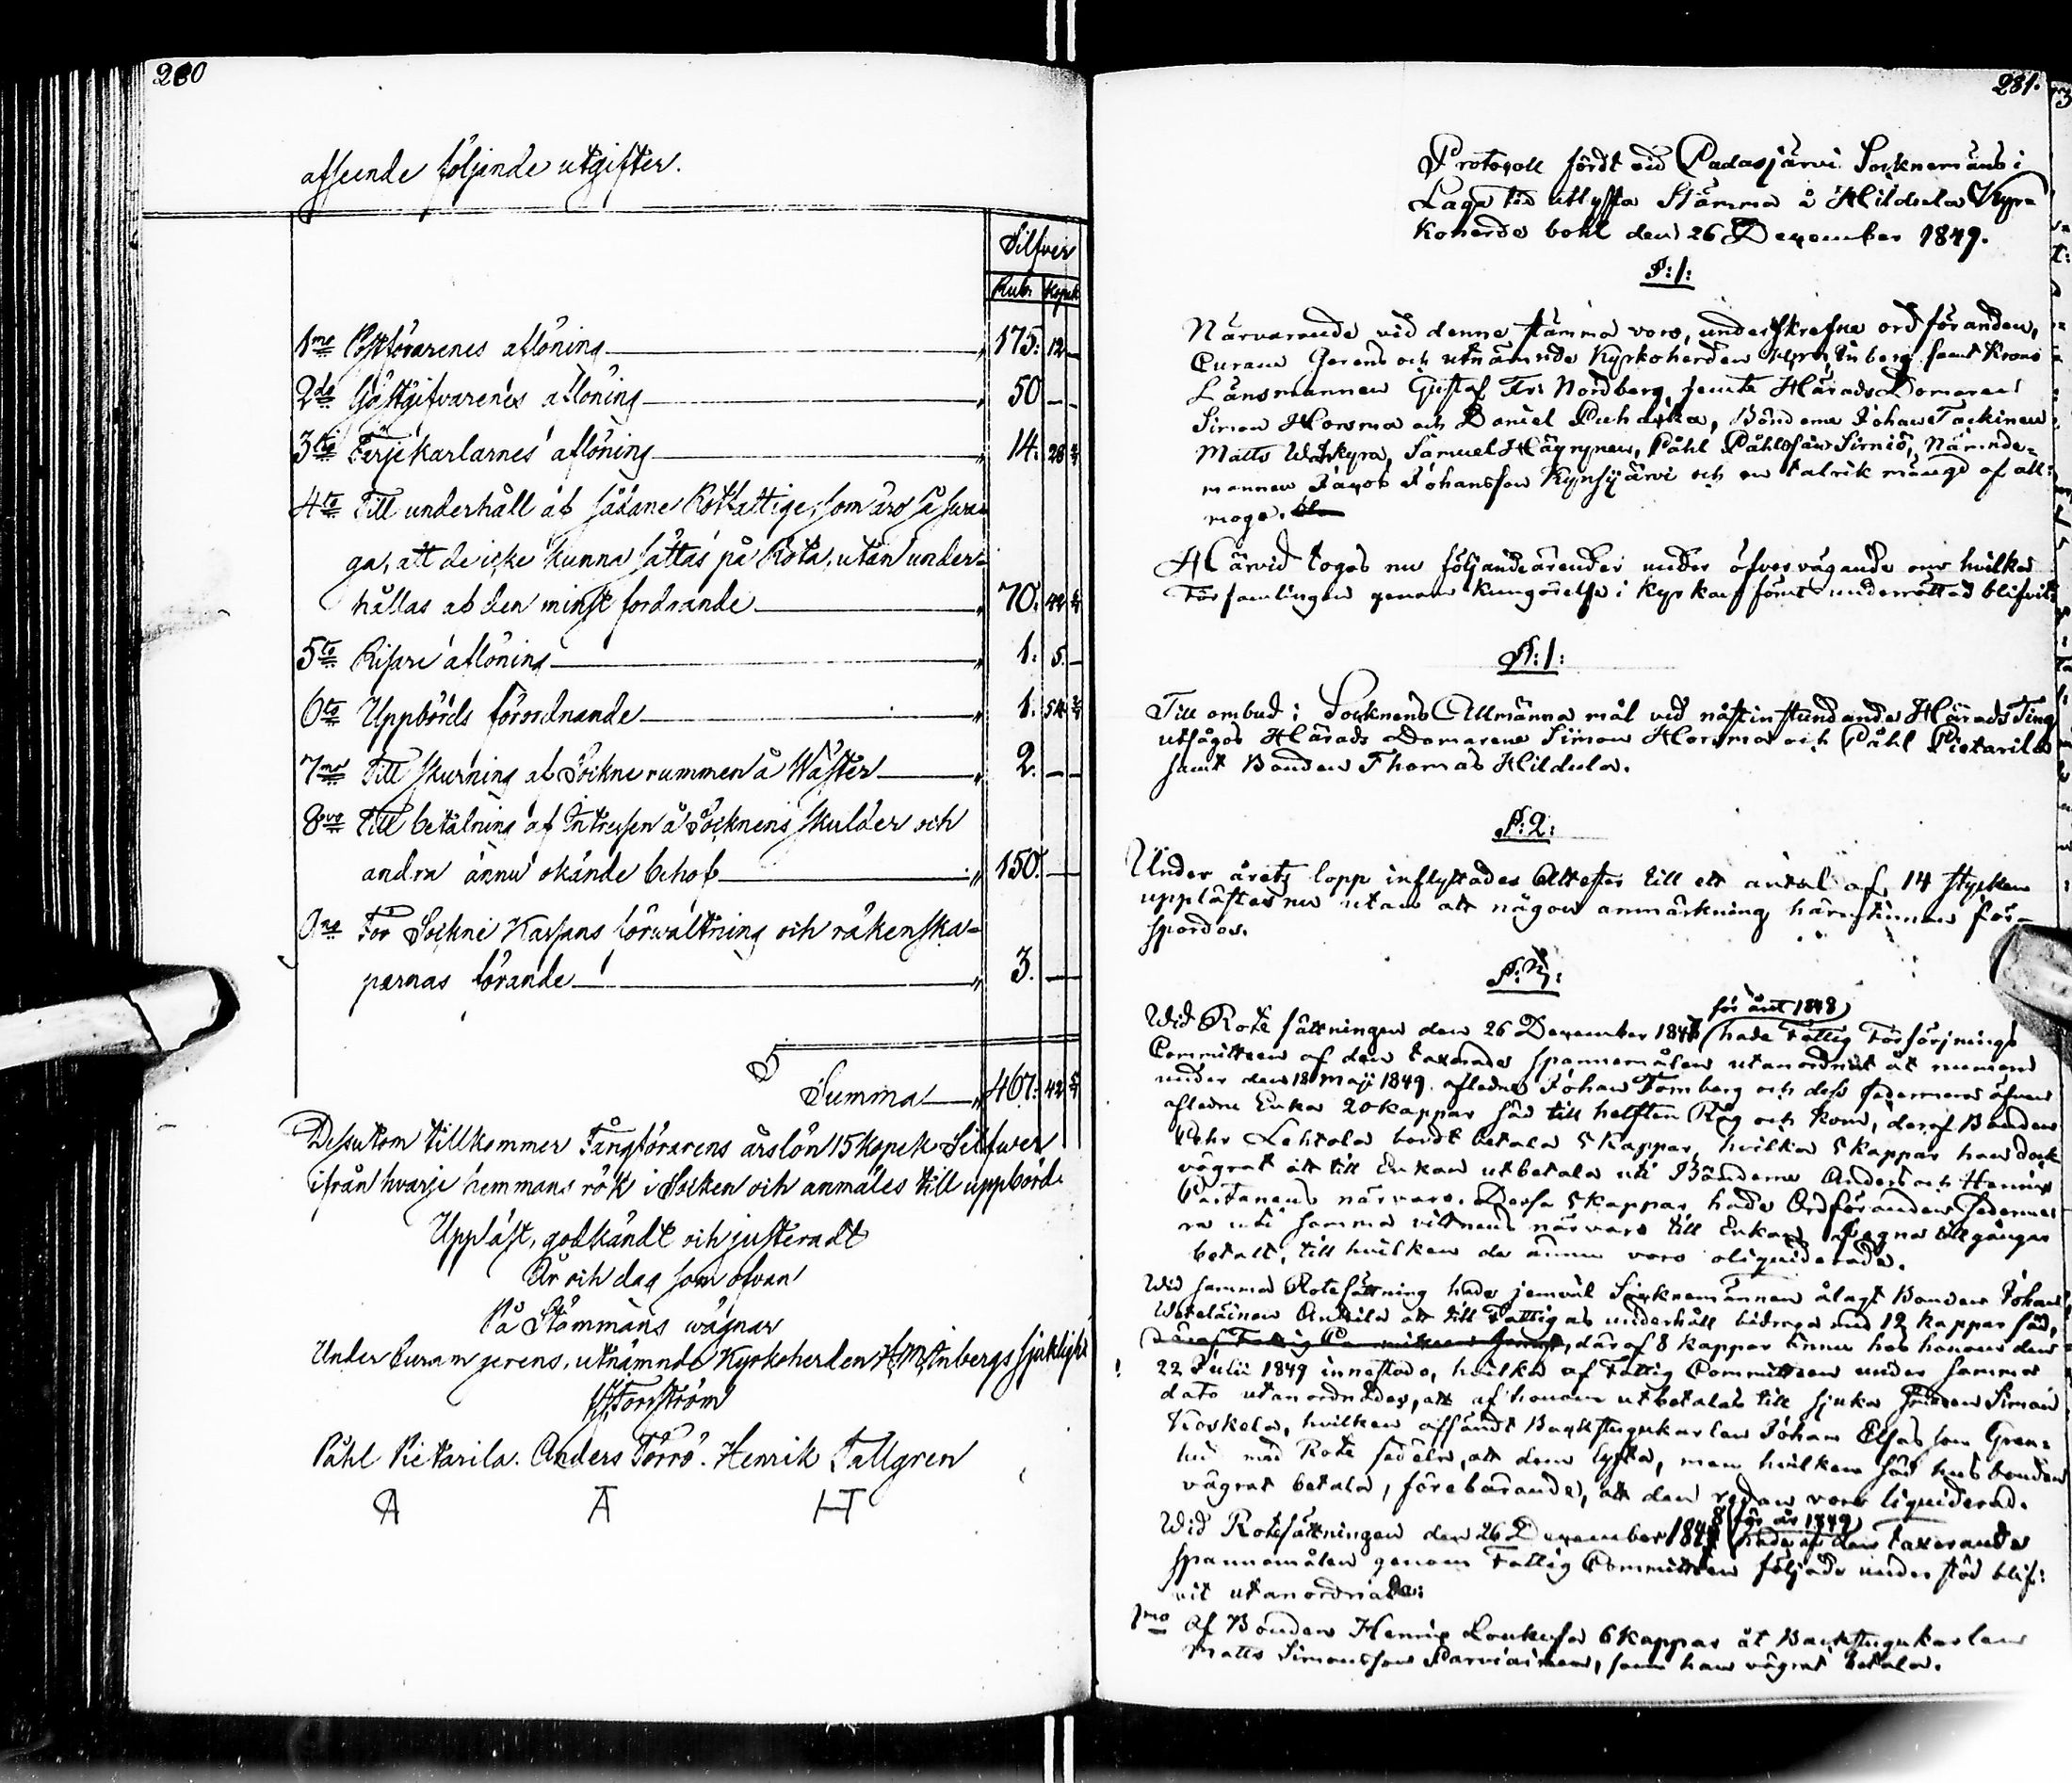 280
afseende följande utgifter.
Silfver
Rub. Kopek
1mo Postförarenes aflöning 175. 12 —
2do Gästgifvarenes aflöning 50 — —
3tio Färjekarlarnes aflöning 14. 28
4to Till underhåll af sådane Rotfattige, som äro så swa-
ga, att de icke kunna sättas på Rota, utan under-
hållas af den minst fordrande 70.
5to Risare aflöning 1. 5. —
6to Uppbörds förordnande 1. 54
7mo Till skurning af Sockne rummen å Wåster 2. — —
8vo Till betalning af Intressen å Socknens skulder och
andra ännu okände behof 150. —
9no För Sockne Kassans förwaltning och räkenska-
pernas förande 3. —
Summa 467. 42
Dessutom tillkommer Fångförarens årslön 15 kopek Silfwer
ifrån hvarje hemmans rök i Socken och anmäles till uppbörd.
Uppläst, godkändt och justeradt
År och dag som ofvan
På Stämmans wägnar
Under Curam gerens, utnämnde Kyrkoherden H. M. Inbergs sjuklighet
Forsström
Påhl Pietarila. Anders Törrö. Henrik Tallgren
A A HT
281.
Protocoll fördt vid Padasjärvi Socknemäns i
Laga tid utlysta Stämma å Hildula Kyrc
koherde bohl den 26 December 1849.
§: 1:
Närvarande vid denne stämma voro, underskrefne ordföranden,
Curam Gerens och utnämnde Kyrkoherden Inberg samt Krono
Länsmannen Gustaf Fr: Nordberg, jemte Härads Domaren
Simon Horsma och Daniel Puhakka, Bönderne Johan Tackinen
Matts Samuel Häyrynen, Påhl Påhlsson Sirniö, Nämnde-
mannen Jacob Johansson Kynsijärvi och en talrik mängd af all-
moge.
Härvid togos nu följande ärender under öfvervägande om hvilka
Församlingen genom kungörelse i Kyrkan förut underrättad blifvit:
§: 1:
Till ombud i Socknens Allmänna mål vid nästinstundande Härads Ting
utsågos Härads Domarene Simon Horsma och Påhl Pietarila
samt Bonden Thomas Hildula.
§: 2:
Under årets lopp inflyttades Attester till ett antal af 14 stycken
upplästes nu utan att någon anmärkning häremtinnan för-
spordes.
§: 3:
för året 1848
Wid Rote sättningen den 26 December 184 hade Fattig Försörjnings
Committeen af den taxerade spannemålen utanordnat åt numera
under den 18 Maji 1849 aflednes Johan Fornberg och dess sedermera äfven
afledne Enka 20 kappar säd till helften Råg och Korn, deraf Bonden
Lehtola bordt betala 5 kappar, hvilka 5 kappar han dock
vägrat att till Enkan utbetala uti Bönderne Anders och Henric
Partanens närvaro. Dessa 5 kappar hade Ordföranden sederme-
ra uti samma vittnens närvaro till Enkan af egna tillgångar
betalt, till hvilken de ännu voro oliquiderade.
Wid samma Rotesättning hade jemväl Socknemännen ålagt Bonden Johan
Anttila att till Fattigas underhåll bidraga med 12 kappar säd,
däraf 8 kappar ännu hos honom den
22 Julii 1849 innestodo, hvilka af Fattig Committeen under samma
dato utanordnades, att af honom utbetalas till sjuka Simon
Koskela, hvilken afsändt Backstugukarlen Johan Eliasson Grön-
lund med Rote sedeln, att dem lyfta, men hvilken säd husbonden
vägrat betala, förebärande, att den redan vore liquiderad.
8 för år 1849
Wid Rotesättningen den 26 December 184 hade af den taxerade
spannemålen genom Fattig Committeen följande understöd blif-
vit utanordnade:
1mo Af Bonden Henric Loukusa 6 kappar åt Backstugukarlen
Matts Simonsson Parviainen, som han vägrat betala.